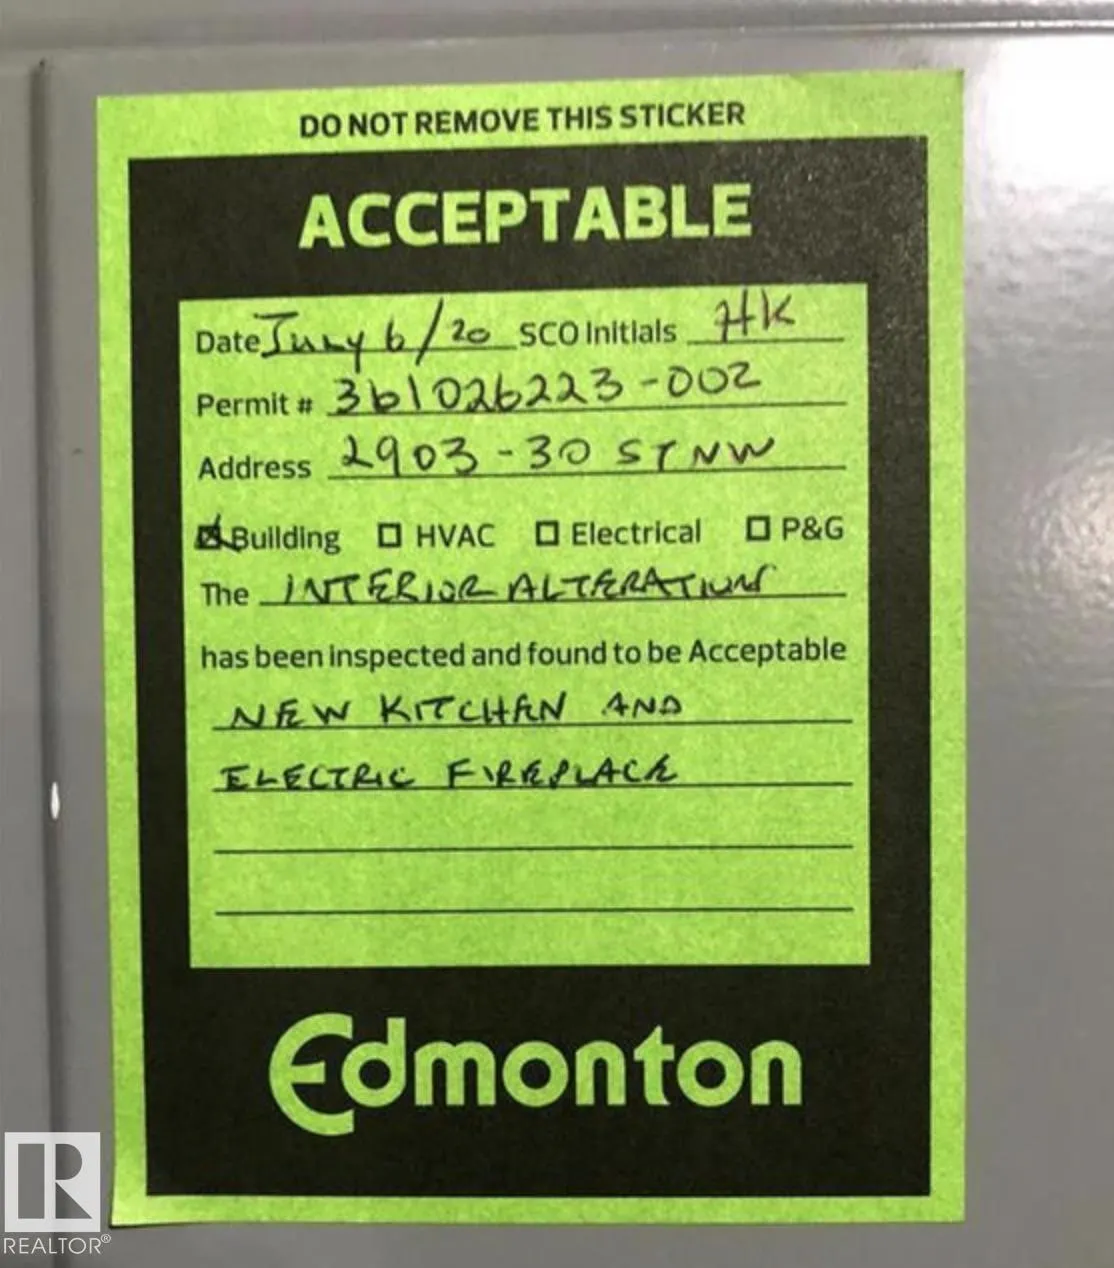 DO NOT REMOVE THIS STICKER
ACCEPTABLE
Date July 6/20 SCO Initials HK
Permit # 361026223-002
Address 2903-30 ST NW
Building HVAC Electrical P&G
The INTERIOR ALTERATION
has been inspected and found to be Acceptable
NEW KITCHEN AND
ELECTRIC FIREPLACE
Edmonton
R
REALTOR®